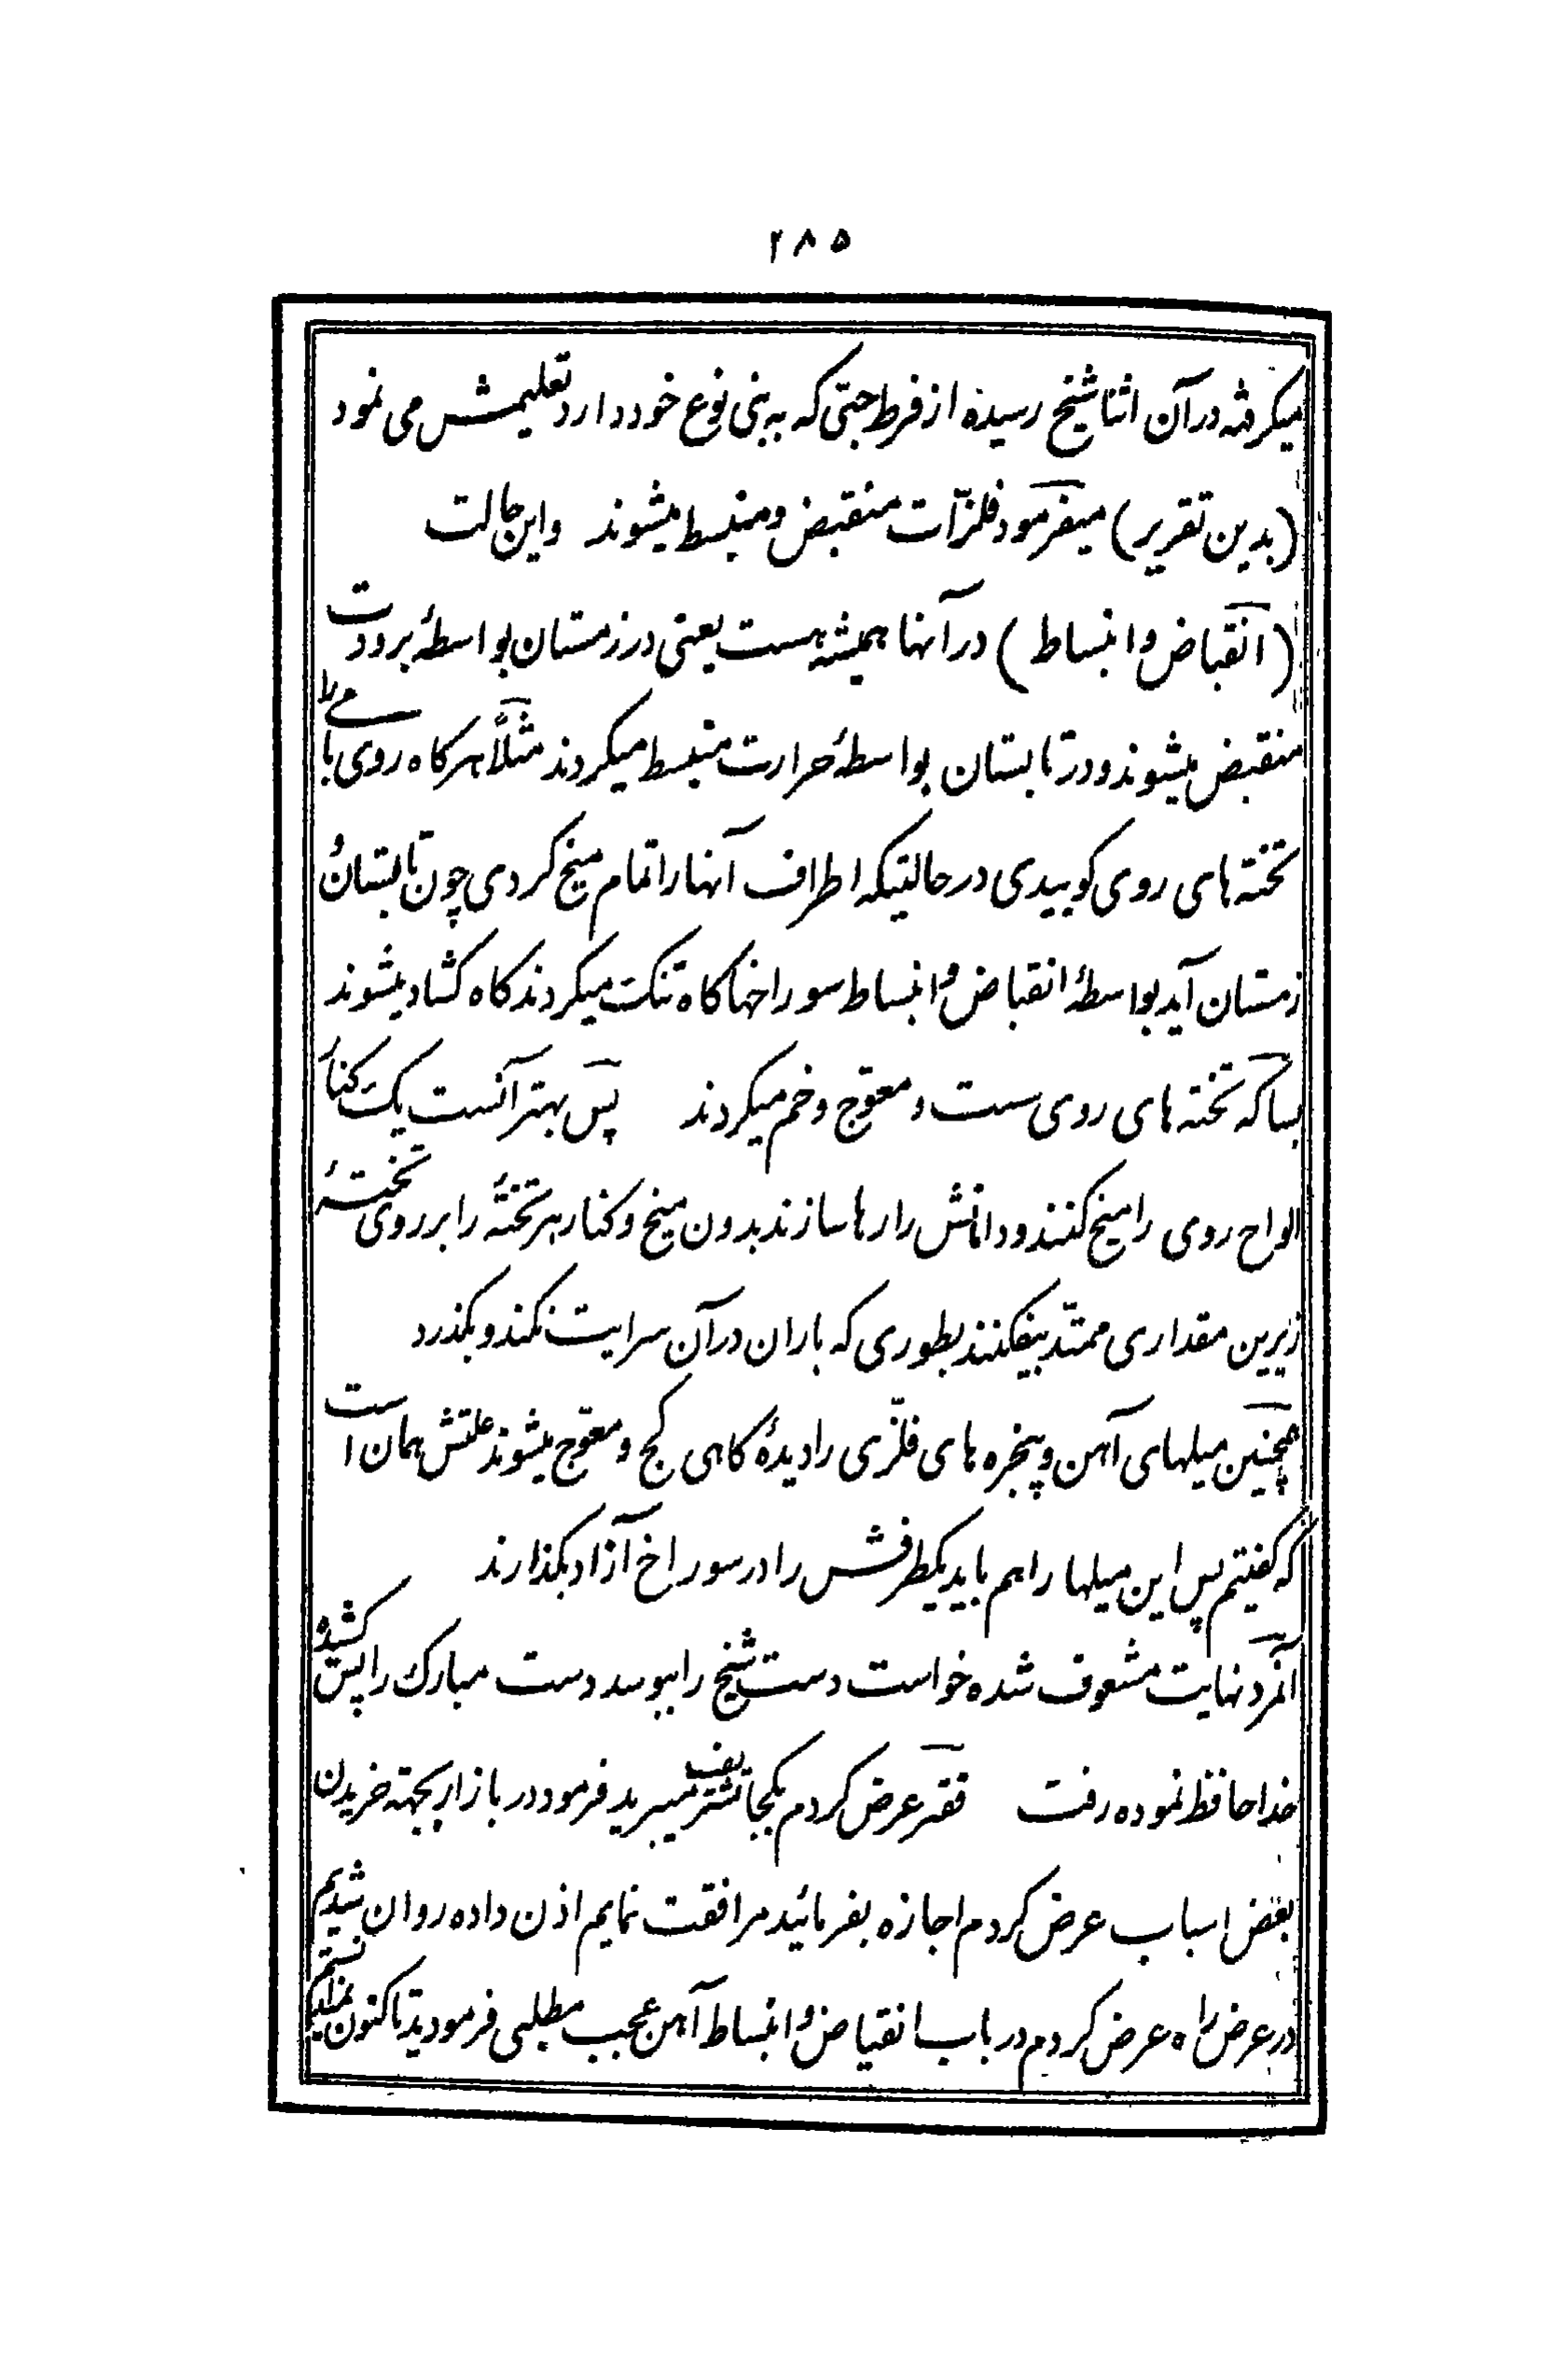 ۲۸۵
میکرفته در آن اثنا شیخ رسیده از فرط حبّی که به بنی نوع خود دارد تعلیمش می نمود
(بدین تقریر) میفرمود فلزّات منقبض و منبسط میشوند واین حالت
(انقباض و انبساط) در آنها همیشه هست یعنی در زمستان بواسطهٔ برودت
منقبض میشوند و در تابستان بواسطهٔ حرارت منبسط میکردند مثلاً هرکاه روی بامی را
تخته های روی کوبیدی در حالتیکه اطراف آنها را تمام میخ کردی چون تابستان و
زمستان آید بواسطهٔ انقباض و انبساط سوراخها کاه تنک میکردند کاه کشاد میشوند
بسا که تخته های روی سست و معوّج و خم میکردند پس بهتر آنست یک کنار
الواح روی را میخ کنند و دامانش را رها سازند بدون میخ و کنار هر تختهٔ را بر روی تختهٔ
زیرین مقداری ممتدّ بیفکنند بطوری که باران در آن سرایت نکند و بکذرد
همچنین میلهای آهن و پنجره های فلزّی را دیدهٔ کاهی کج و معوّج میشوند علتش همان است
که کفیتم پس این میلها را هم باید یکطرفش را در سوراخ آزاد بکذارند
آنمرد نهایت مشعوف شده خواست دست شیخ را ببوسد دست مبارک را پس کشیده
خدا حافظ نموده رفت فقیر عرض کردم بکجا تشریف میبرید فرمود در بازار بجهته خریدن
بعض اسباب عرض کردم اجازه بفرمائید مرافقت نمایم اذن داده روان شدیم
در عرض راه عرض کردم در باب انقباض و انبساط آهن عجب مطلبی فرمودید تا کنون نمیدانستم